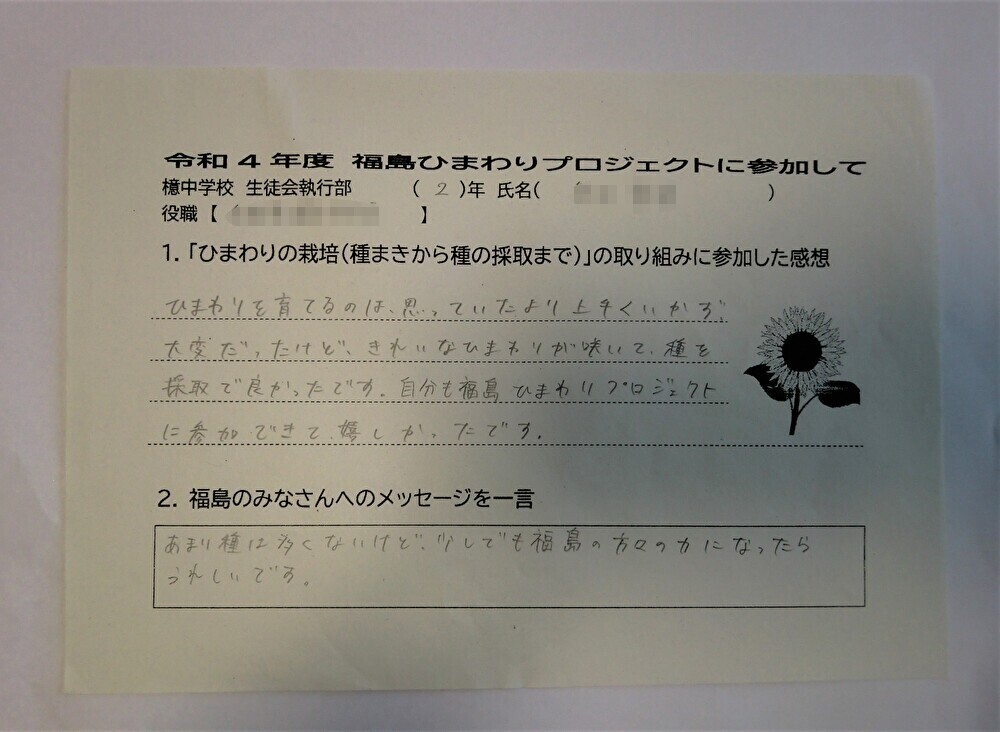 令和４年度 福島ひまわりプロジェクトに参加して
檍中学校 生徒会執行部 (２)年 氏名( )
役職【 】
1.「ひまわりの栽培(種まきから種の採取まで)」の取り組みに参加した感想
ひまわりを育てるのは、思っていたより上手くいかず、
大変だったけど、きれいなひまわりが咲いて、種を
採取で良かったです。自分も福島ひまわりプロジェクト
に参加できて、嬉しかったです。
2. 福島のみなさんへのメッセージを一言
あまり種は多くないけど、少しでも福島の方々の力になったら
うれしいです。